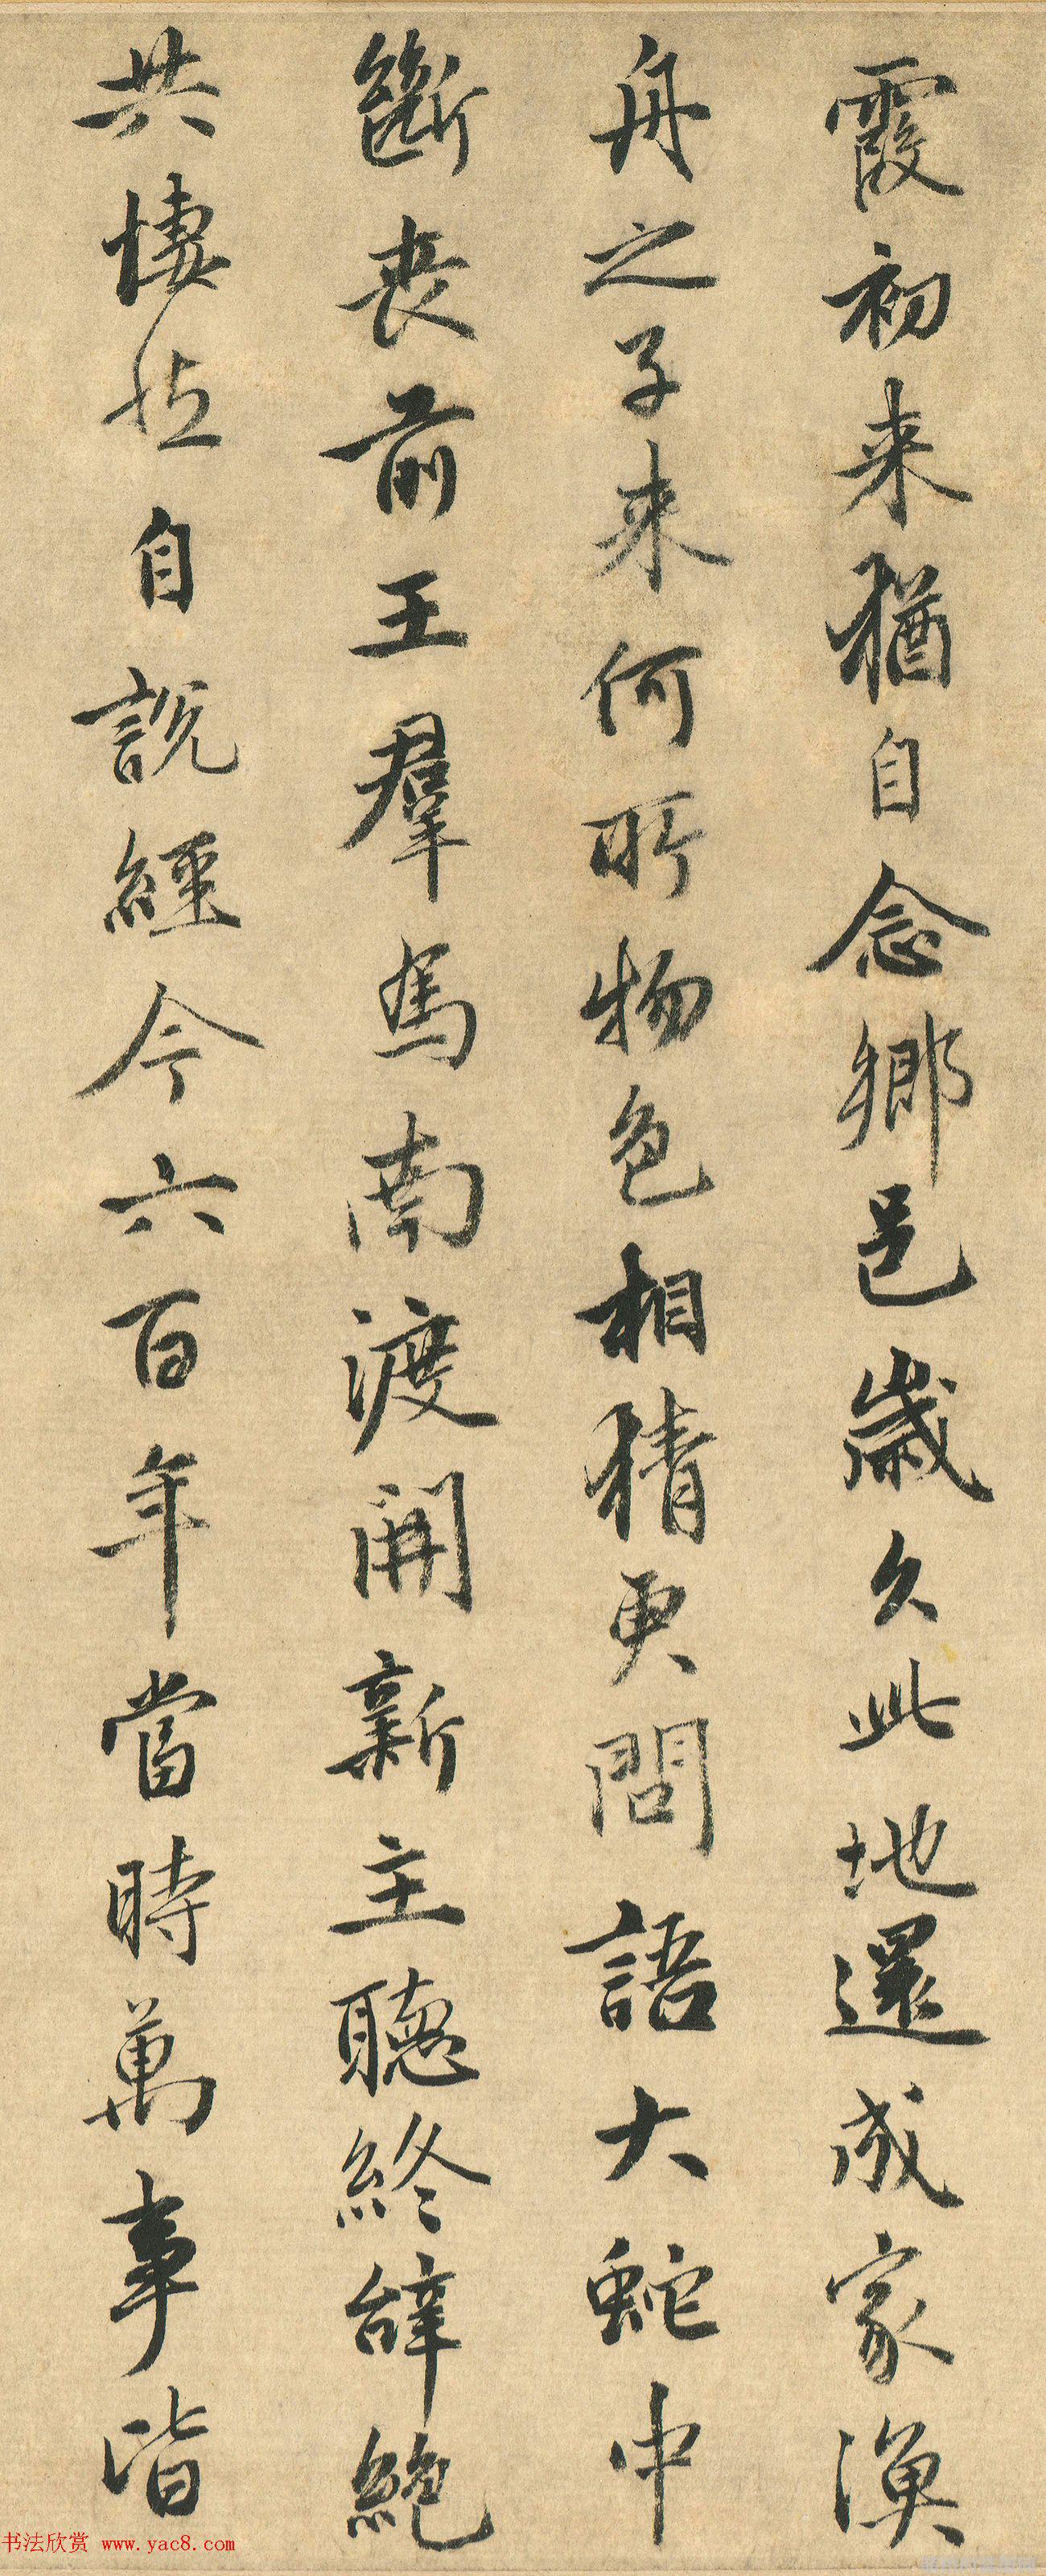 霞初来猶自念鄉邑歲久此地還成家漁
舟之子来何所物色相猜更問語大蛇中
斷喪前王羣馬南渡開新主聽終辭絕
共悽然自說經今六百年當時萬事皆
书法欣赏 www.yac8.com